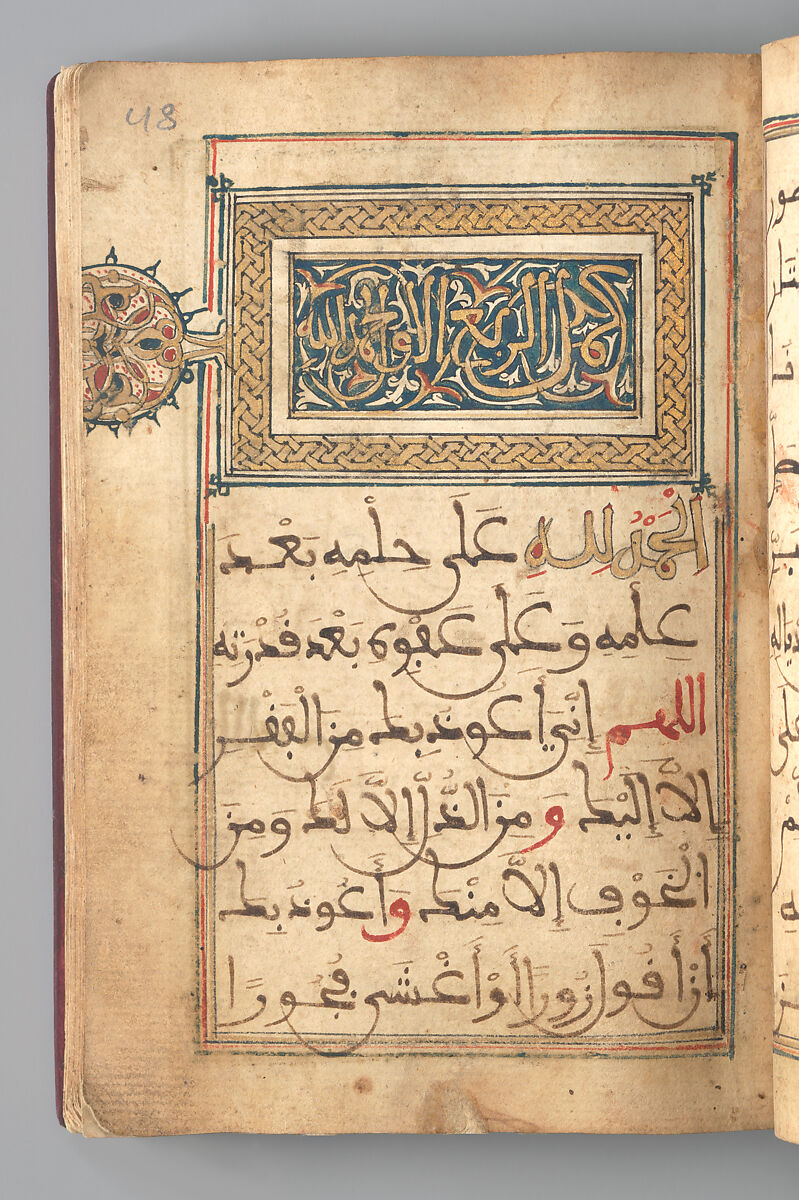 48
كمل الربع الاول والحمد لله
الْحَمْدُ لِلهِ عَلَى حِلْمِهِ بَعْدَ
عِلْمِهِ وَعَلَى عَفْوِهِ بَعْدَ قُدْرَتِهِ
اللهم إِنِّي أَعُوذُ بِكَ مِنَ الْفَقْرِ
إِلاَّ إِلَيْكَ وَمِنَ الذُّلِّ إِلاَّ لَكَ وَمِنَ
الْخَوْفِ إِلاَّ مِنْكَ وَأَعُوذُ بِكَ
أَنْ أَقُولَ زُورًا أَوْ أَغْشَى فُجُورًا